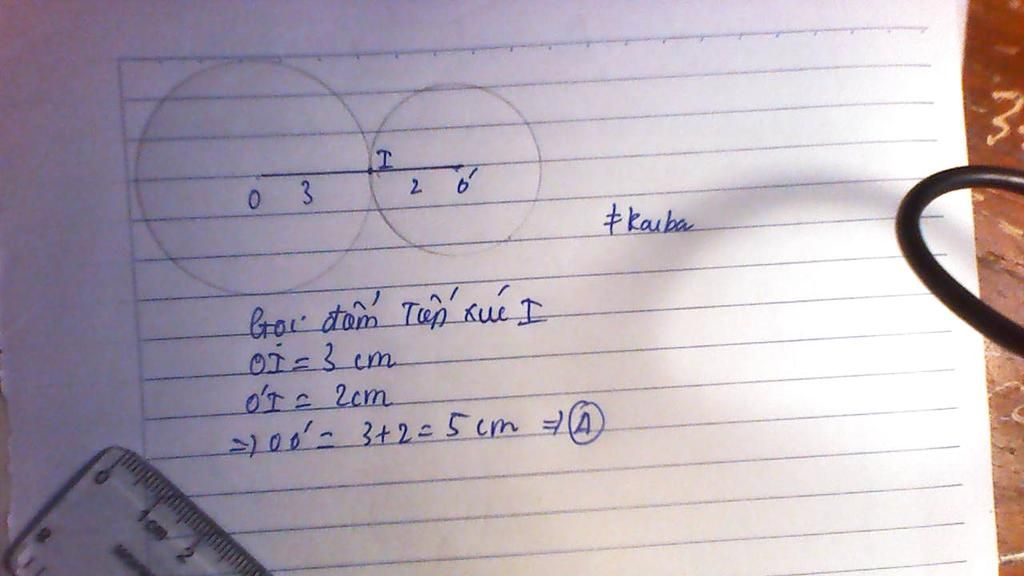 I
O 3 2 O'
≠ kaiba
Gọi điểm Tiếp xúc I
OI = 3 cm
O'I = 2cm
=> OO' = 3+2 = 5 cm => A
0 1cm 2